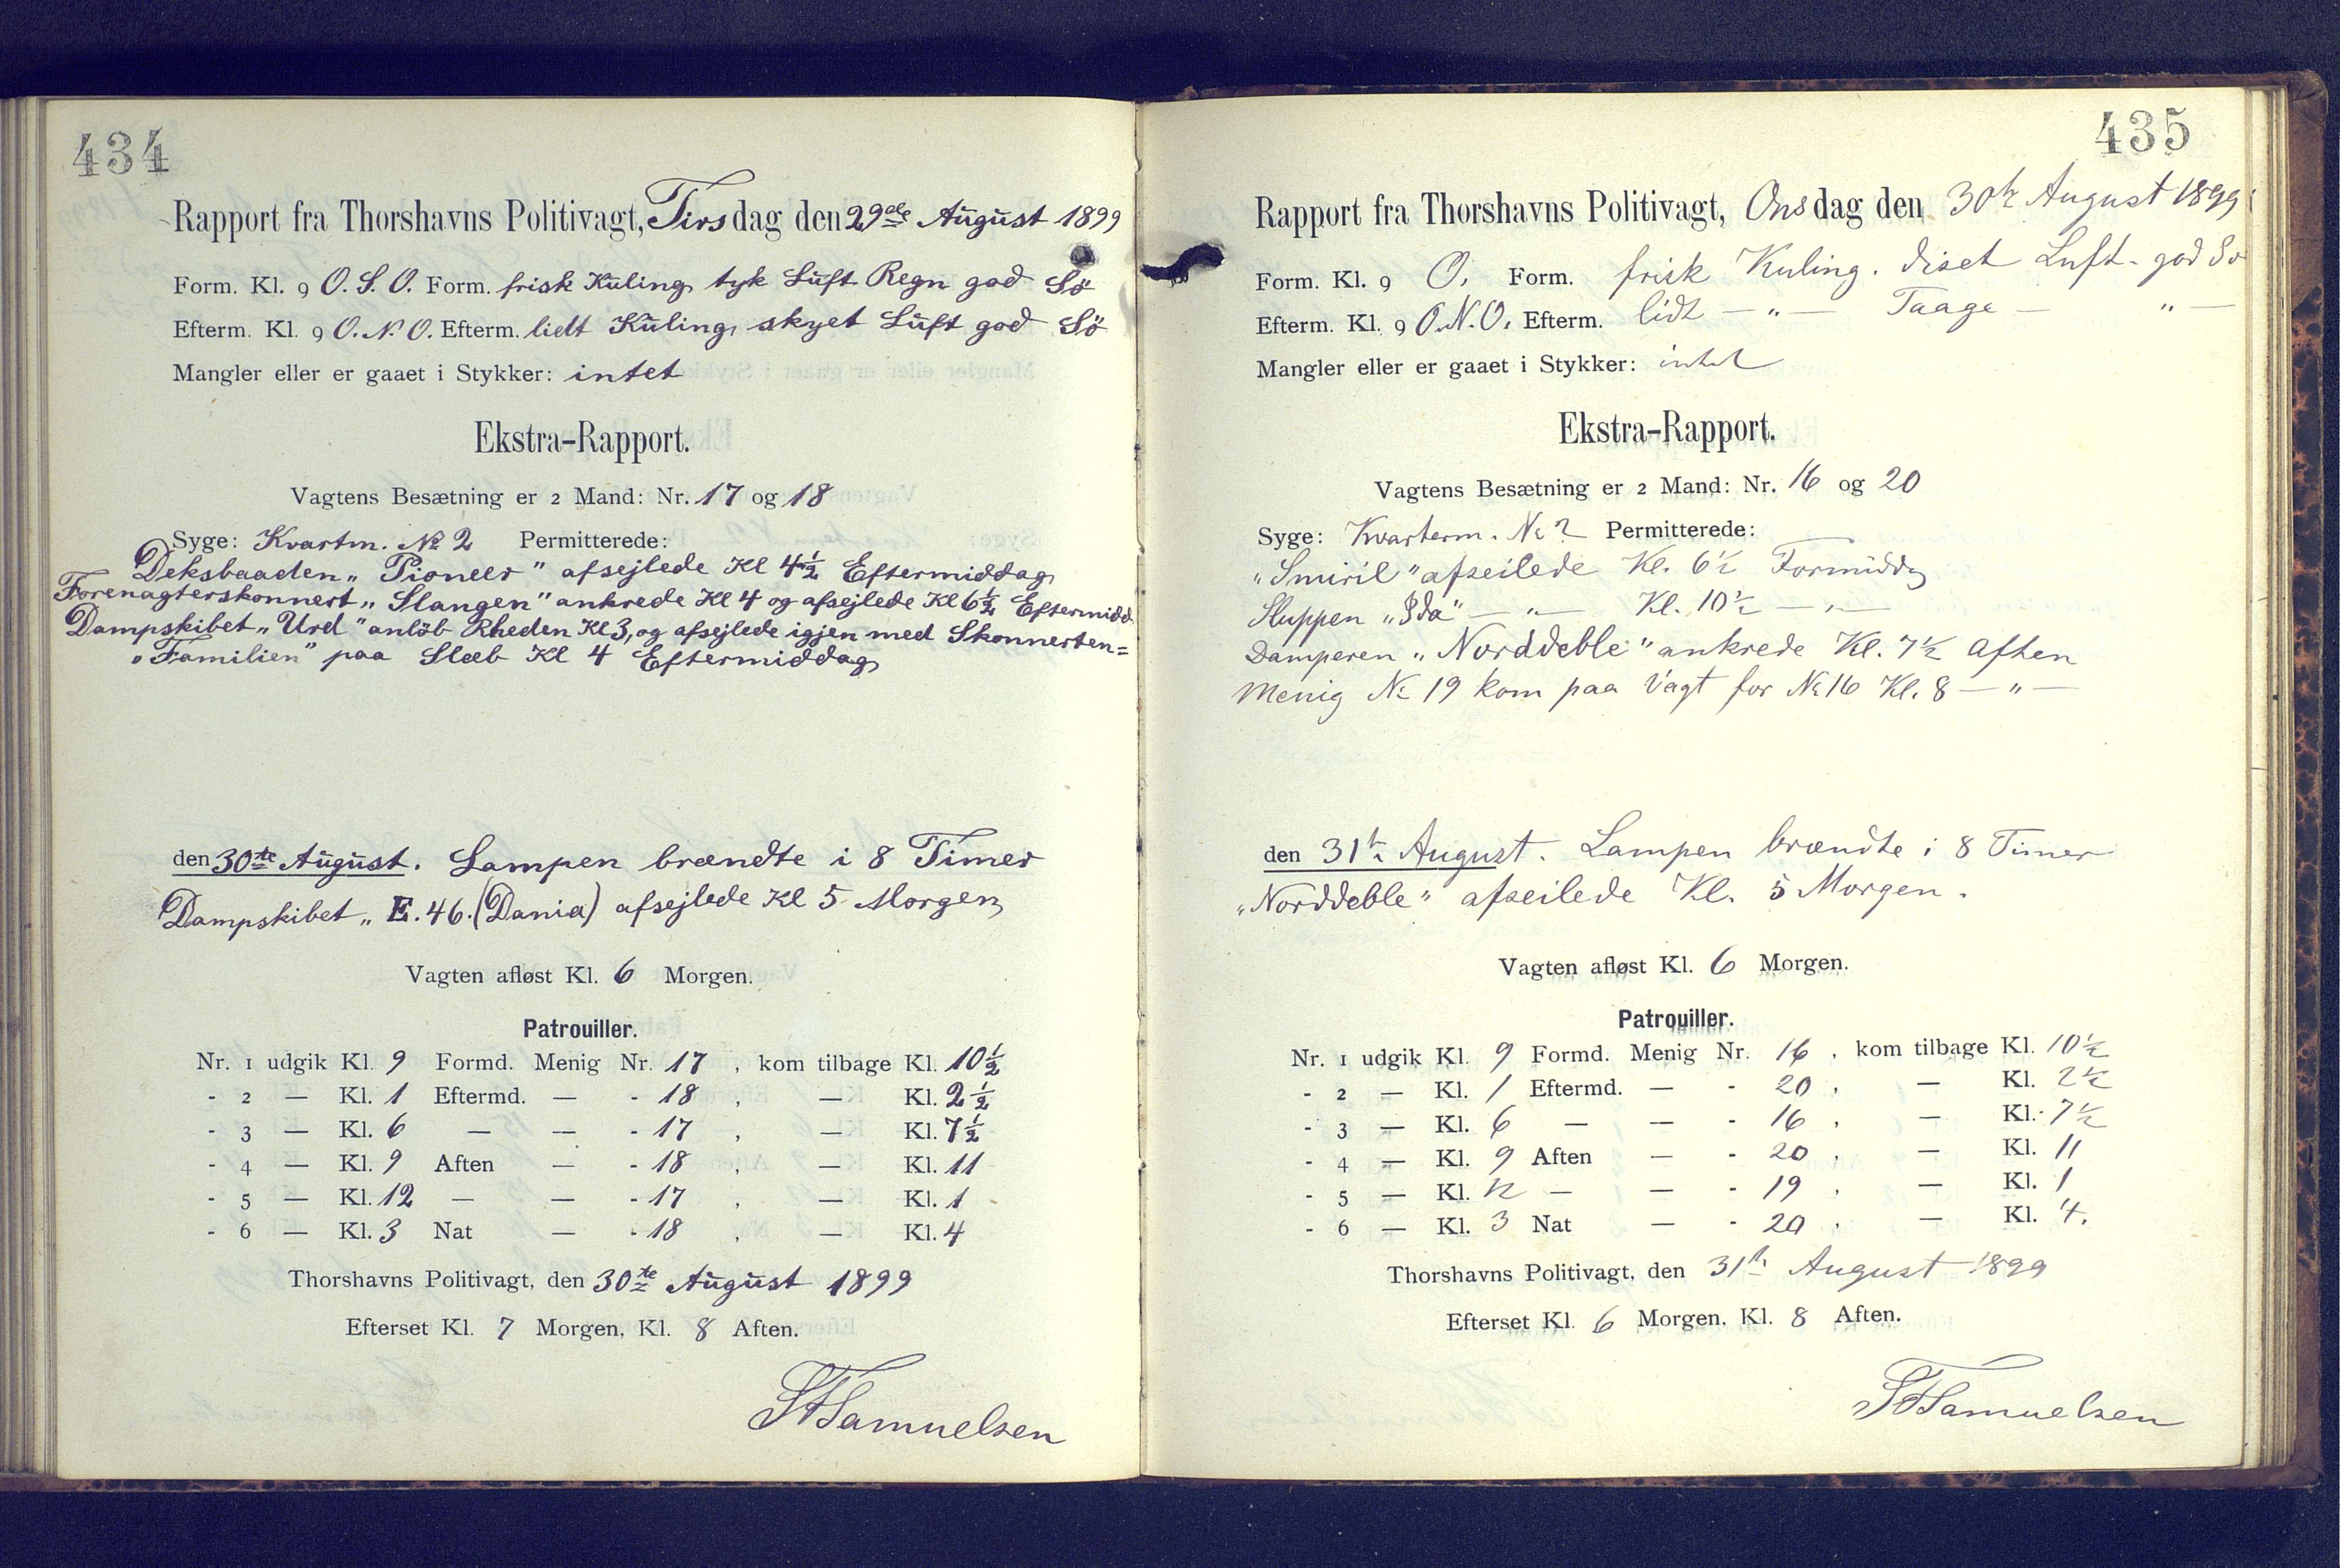 434
Rapport fra Thorshavns Politivagt, Tirsdag den 29de August 1899
Form. Kl. 9 O. S. O. Form. frisk Kuling tyk Luft Regn god Sö
Efterm. Kl. 9 O. N. O. Efterm. lidt Kuling, skyet Luft god Sö
Mangler eller er gaaet i Stykker: intet
Ekstra-Rapport.
Vagtens Besætning er 2 Mand: Nr. 17 og 18
Syge: Kvartm. № 2 Permitterede:
Deksbaaden „Pioneer" afsejlede Kl 4½ Eftermiddag
Forenagterskonnert „Slangen" ankrede Kl 4 og afsejlede Kl 6½ Eftermidd
Dampskibet „Urd" anlöb Rheden Kl 3, og afsejlede igjen med Skonnerten=
„Familien" paa Slæb Kl 4 Eftermiddag
den 30te August. Lampen brændte i 8 Timer
Dampskibet „E. 46. (Dania) afsejlede Kl 5 Morgen
Vagten afløst Kl. 6 Morgen.
Patrouiller.
Nr. 1 udgik Kl. 9 Formd. Menig Nr. 17, kom tilbage Kl. 10½
- 2 — Kl. 1 Eftermd. — - 18, — Kl. 2½
- 3 — Kl. 6 — — - 17, — Kl. 7½
- 4 — Kl. 9 Aften — - 18, — Kl. 11
- 5 — Kl. 12 — — - 17, — Kl. 1
- 6 — Kl. 3 Nat — - 18, — Kl. 4
Thorshavns Politivagt, den 30te August 1899
Efterset Kl. 7 Morgen, Kl. 8 Aften.
Samuelsen
435
Rapport fra Thorshavns Politivagt, Onsdag den 30te August 1899
Form. Kl. 9 O. Form. frisk Kuling. diset Luft - god So
Efterm. Kl. 9 O.N.O. Efterm. lidt — „ — Taage — „ —
Mangler eller er gaaet i Stykker: intet
Ekstra-Rapport.
Vagtens Besætning er 2 Mand: Nr. 16 og 20
Syge: Kvarterm. № 2 Permitterede:
„Smiril" afseilede Kl. 6½ Formidd
Sluppen „Ida" — „ — Kl. 10½ — „ —
Damperen „Norddeble" ankrede Kl. 7½ Aften
Menig № 19 kom paa Vagt for № 16 Kl. 8 — „ —
den 31te August. Lampen brændte i 8 Timer
„Norddeble" afseilede Kl. 5 Morgen.
Vagten afløst Kl. 6 Morgen.
Patrouiller.
Nr. 1 udgik Kl. 9 Formd. Menig Nr. 16, kom tilbage Kl. 10½
- 2 — Kl. 1 Eftermd. — - 20, — Kl. 2½
- 3 — Kl. 6 — — - 16, — Kl. 7½
- 4 — Kl. 9 Aften — - 20, — Kl. 11
- 5 — Kl. 12 — — - 19, — Kl. 1
- 6 — Kl. 3 Nat — - 20, — Kl. 4.
Thorshavns Politivagt, den 31te August 1899
Efterset Kl. 6 Morgen, Kl. 8 Aften.
Samuelsen